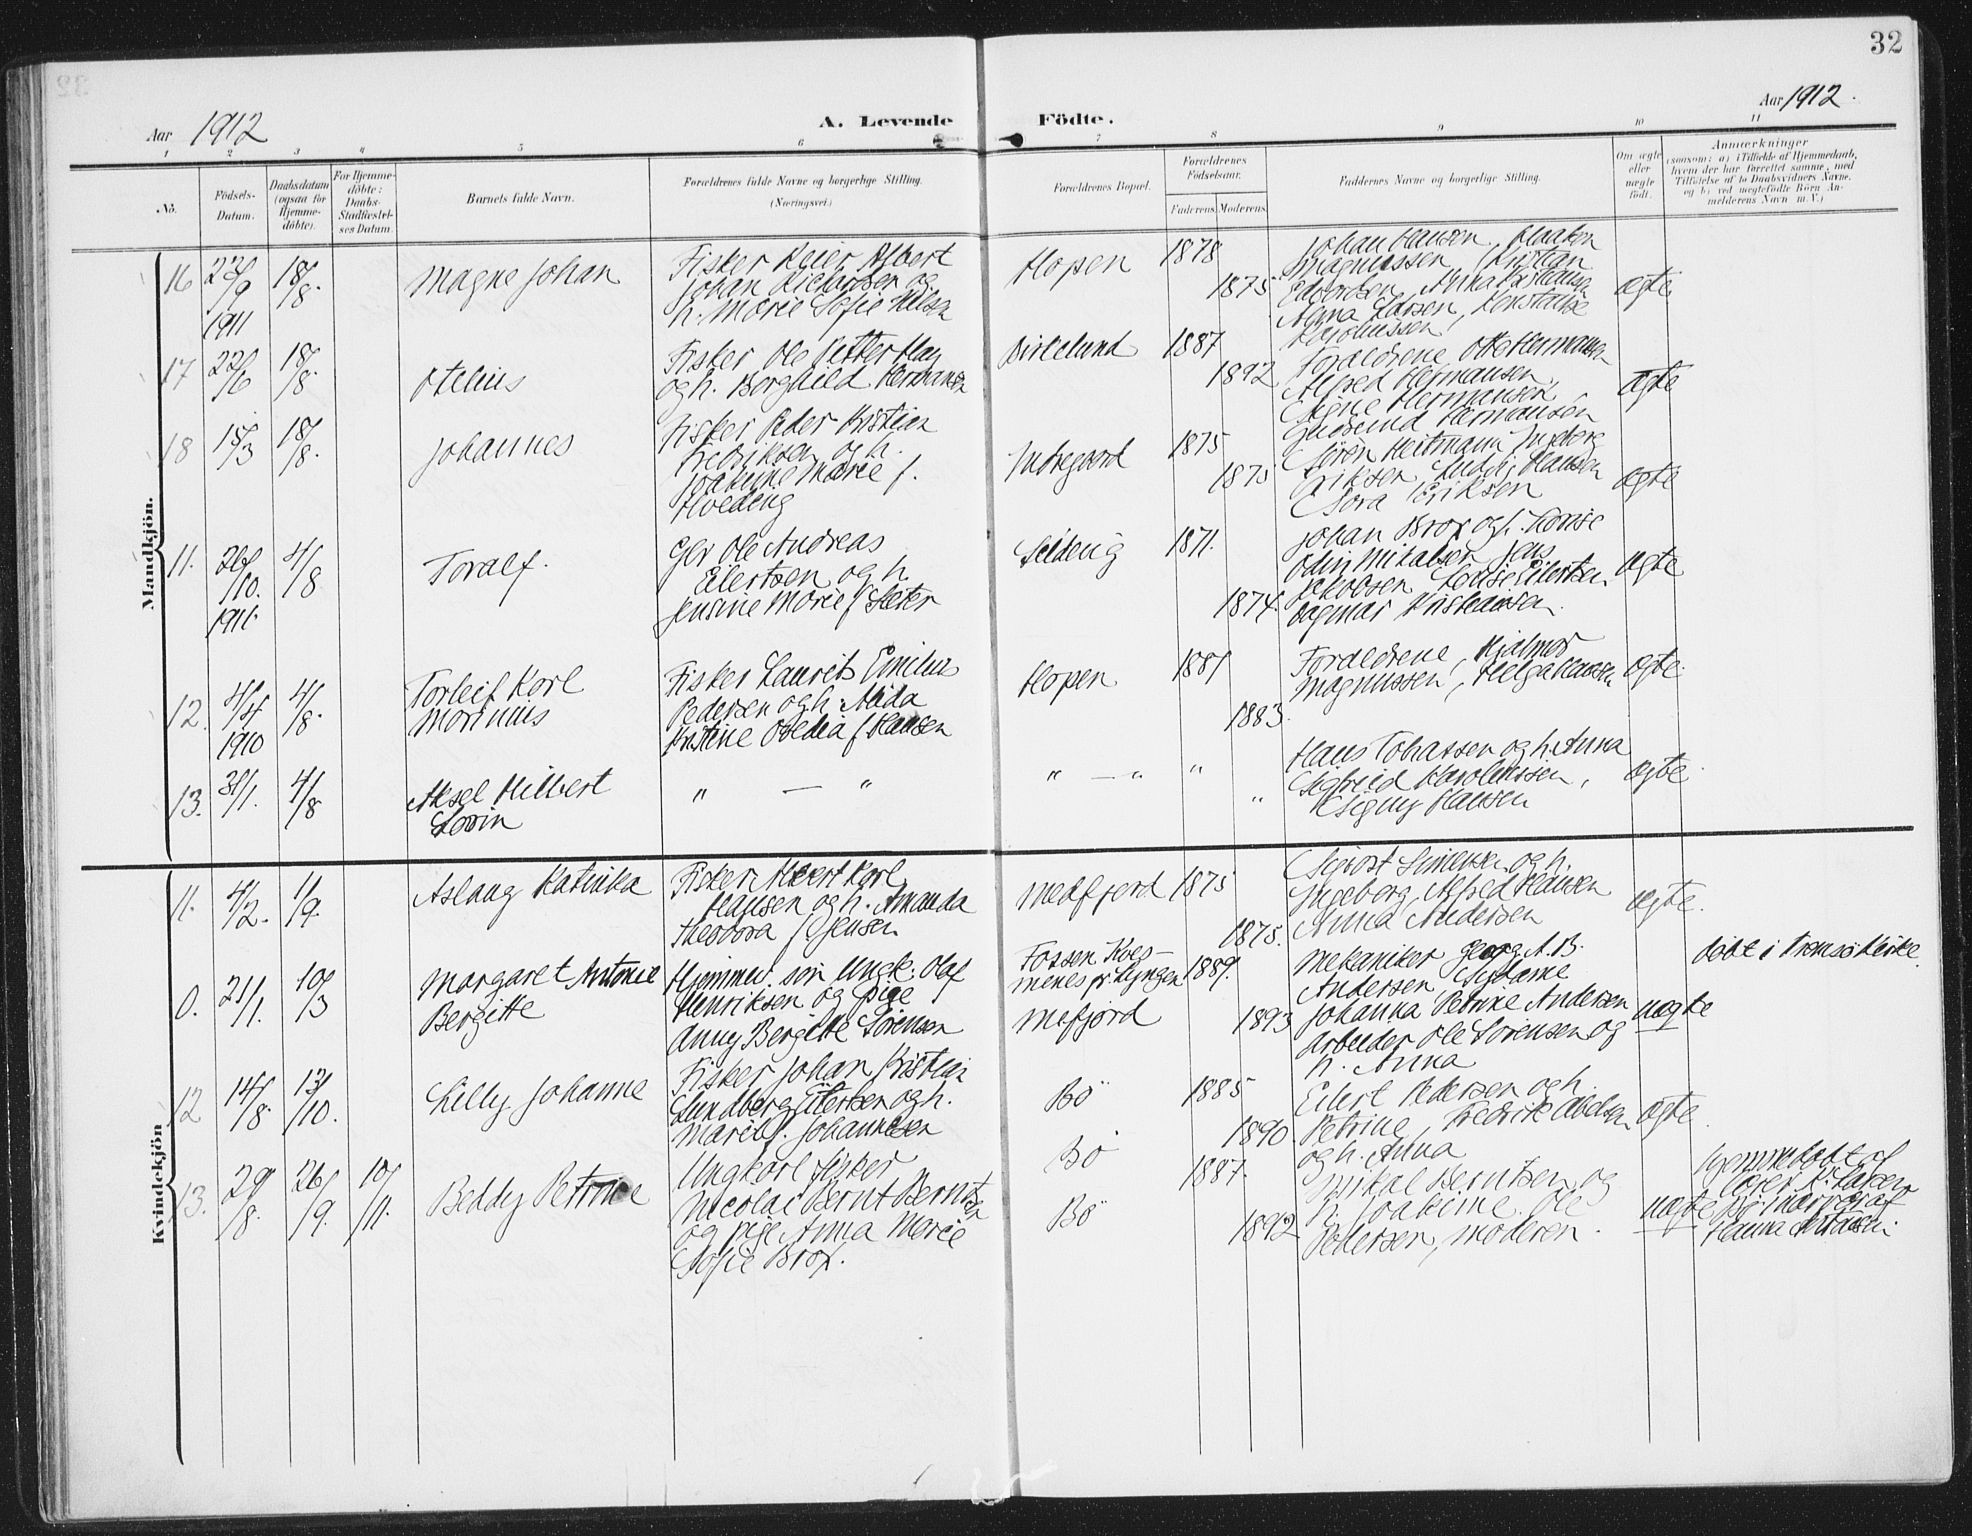 32
Aar 1912
A. Levende Födte.
Aar 1912.
1 2 3 4 5 6 7 8 9 10 11
No.
Födsels-Datum.
Daabsdatum (ogsaa for Hjemme-döbte).
For Hjemme-döbte: Daabs-Stadfæstel-ses Datum.
Barnets fulde Navn.
Forældrenes fulde Navne og borgerlige Stilling. (Næringsvei.)
Forældrenes Bopæl.
Forældrenes Födselsaar.
Faderens. Moderens.
Faddernes Navne og borgerlige Stilling.
Om ægte eller uægte födt.
Anmærkninger
(saasom: a) i Tilfælde af Hjemmedaab, hvem der har forrettet samme, med Tilföielse af to Daabsvidners Navne. og b) ved uegtefödte Börn An-melderens Navn m. V.)
Mandkjön.
16 23/9 1911 18/8.
Magne Johan
Fisker Peier Albert
Johan Richardsen og
h. Marie Sofie Nilsen
Hopen
1878
1875
Johan Hansen, Haakon
Magnussen, Kristian
Edvardsen, Anna Kristiansen
Anna Larsen, Konstanse
Karoliussen
ægte
17 22/6 18/8.
Otelius
Fisker Ole Petter Hay
og h. Borghild Hermansen
Birkelund
1887
1892
Forældrene, Otte Hermansen
Alfred Hermansen,
Signe Hermansen,
Gudrund Hermansen
ægte
18 15/3 18/8.
Johannes
Fisker Peder Kristian
Fredriksen og h.
Joakime Marie f.
Hveding
Indregaard
1875
1875
Sören Heitmann, Ingeborg
Eriksen, Ludvig Hansen
Sora Eriksen
ægte
11. 26/10. 1911. 4/8
Toralf.
Gbr Ole Andreas
Eilertsen og h.
Jensine Marie f Sæter
1871.
1874.
Johan Brox og h. Lovise
Odin Mikalsen, Jens
Jakobsen, Lovise Eilertsen
Dagmar Kristiansen.
ægte
12. 4/4 1910 4/8.
Torleif Karl
Marinius
Fisker Laurits Emilius
Pedersen og h. Alida
Kristine Ovedia f Hansen
Hopen
1881
1883.
Forældrene, Hjalmar
Magnussen, Helga Hansen
ægte.
13. 31/1. 4/8
Aksel Hilbert
Lorin
" — "
" — " "
"
Hans Tobiassen og h. Anna
Sigfried Karoliussen,
Signy Hansen
ægte.
Kvindekjön
11. 4/2. 1/9.
Aslaug Katinka
Fisker Albert Karl
Hansen og h. Amanda
Theodora f Jensen
Medfjord
1875
1875.
Sigvart Simensen og h.
Ingeborg, Alfred Hansen
Anna Andersen
ægte.
0. 21/1. 10/3
Margaret Antonie
Bergitte
Hjemmev. søn Ungk. Olaf
Henriksen og pige
Anny Bergitte Sörensen
Fossen Kves-
menes pr Lyngen
Mefjord
1889.
1893
Mekaniker Georg A. B.
Andersen, Sydame
Johanna Petrine Andersen
Arbeider Ole Sorensen og
h. Anna
uægte
döbt i Tromsö Kirke.
12 14/8. 13/10.
Lilly Johanne
Fisker Johan Kristian
Lundberg Eilertsen og h.
Marie f. Johannesen
Bö
1885
1890
Eilert Pedersen og h.
Petrine, Fredrik Abelsen
og h. Anna
ægte.
13. 29/8. 26/9. 10/11.
Beddy Petrine
Ungkarl fisker
Nicolai Bernt Berntsen
og pige Anna Marie
Sofie Brox.
Bö
Bö
1887.
1892
Mikal Berntsen og
h. Joakime. Ole
Pedersen, moderen.
uægte
hjemmedöbt af